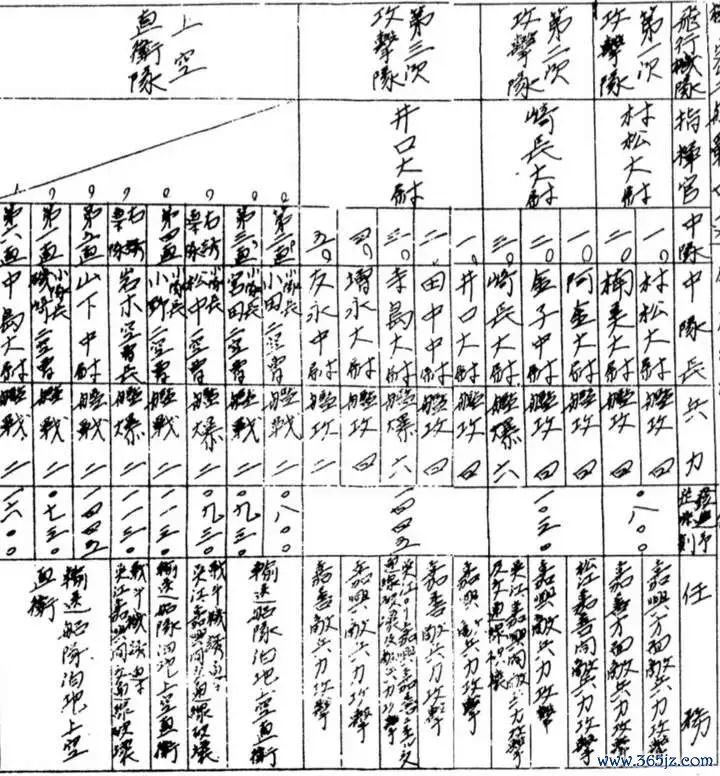 飛行機隊
第一次
攻撃隊
第二次
攻撃隊
第三次
攻撃隊
上空
直衛隊
指揮官
村松大尉
崎長大尉
井口大尉
中隊
一〇
二〇
一〇
二〇
三〇
一〇
二〇
三〇
四〇
五〇
第二直
第三直
右誘
第四直
右誘
第五直
第一直
第六直
中隊長
村松大尉
楠美大尉
阿金大尉
金子中尉
崎長大尉
井口大尉
田中中尉
寺島大尉
増永大尉
友永中尉
小隊長
小田一空曹
小隊長
宮田二空曹
小隊長
松中一空曹
小隊長
小野二空曹
岩木空曹長
山下中尉
小隊長
磯崎一空曹
中島大尉
兵力
艦攻 四
艦攻 四
艦攻 四
艦攻 四
艦爆 六
艦攻 四
艦攻 四
艦爆 六
艦攻 四
艦攻 二
艦戦 二
艦戦 二
艦爆 二
艦戦 二
艦爆 二
艦戦 二
艦戦 二
艦戦 二
〇八〇〇
一〇三〇
一四四五
〇八〇〇
〇九三〇
〇九三〇
一一三〇
一一三〇
一四四五
〇七三〇
一六〇〇
任務
嘉興方面敵兵力攻撃
嘉善方面敵兵力攻撃
松江嘉善間敵兵力攻撃
嘉興敵兵力攻撃
嘉興敵兵力攻撃
嘉善敵兵力攻撃
嘉興敵兵力攻撃
嘉善敵兵力攻撃
輸送船隊泊地上空直衛
戦斗機誘導
松江嘉興間交通線破壊
輸送船隊泊地上空直衛
戦斗機誘導
松江嘉興間交通線破壊
輸送船隊泊地上空
直衛
www.365jz.com